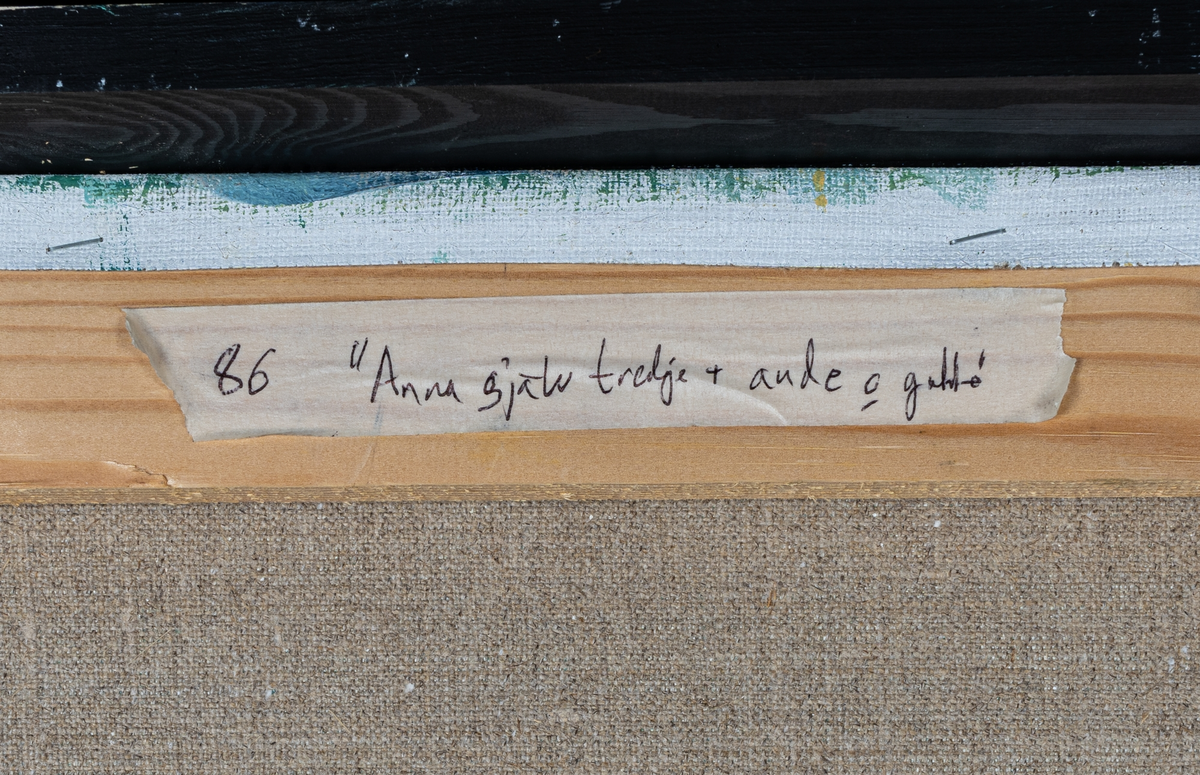 86 "Anna själv tredje + ande o gubbe"